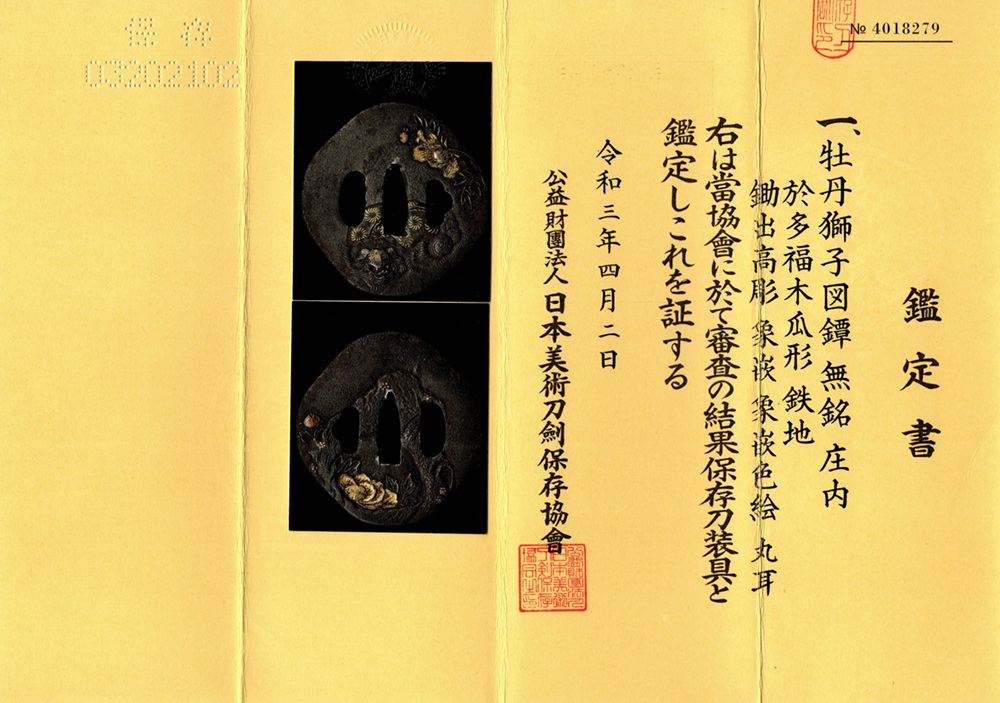 № 4018279
鑑定書
一、牡丹獅子図鐔 無銘 庄内
於多福木瓜形 鉄地
鋤出高彫 象嵌 象嵌色絵 丸耳
右は當協會に於て審査の結果保存刀装具と
鑑定しこれを証する
令和三年四月二日
公益財團法人 日本美術刀劍保存協會
保存
03202102